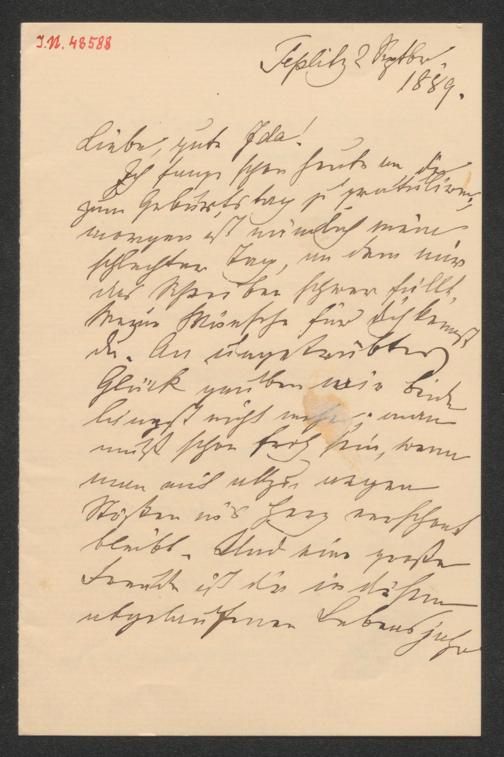 I.N. 48588
Teplitz 2 Septbr
1889.
Liebe, gute Ida!
Ich fange schon heute an, dir
zum Geburtstag zu gratuliren,
morgen ist nämlich mein
schlechter Tag, an dem mir
das Schreiben schwer fällt.
Meine Wünsche für dich kennst
du. An ungetrübtes
Glück glauben wir beide
längst nicht mehr, man
muß schon froh sein, wenn
man mit allzu argen
Stößen in's Herz verschont
bleibt. Und eine große
Freude ist dir in diesem
abgelaufenen Lebensjahr